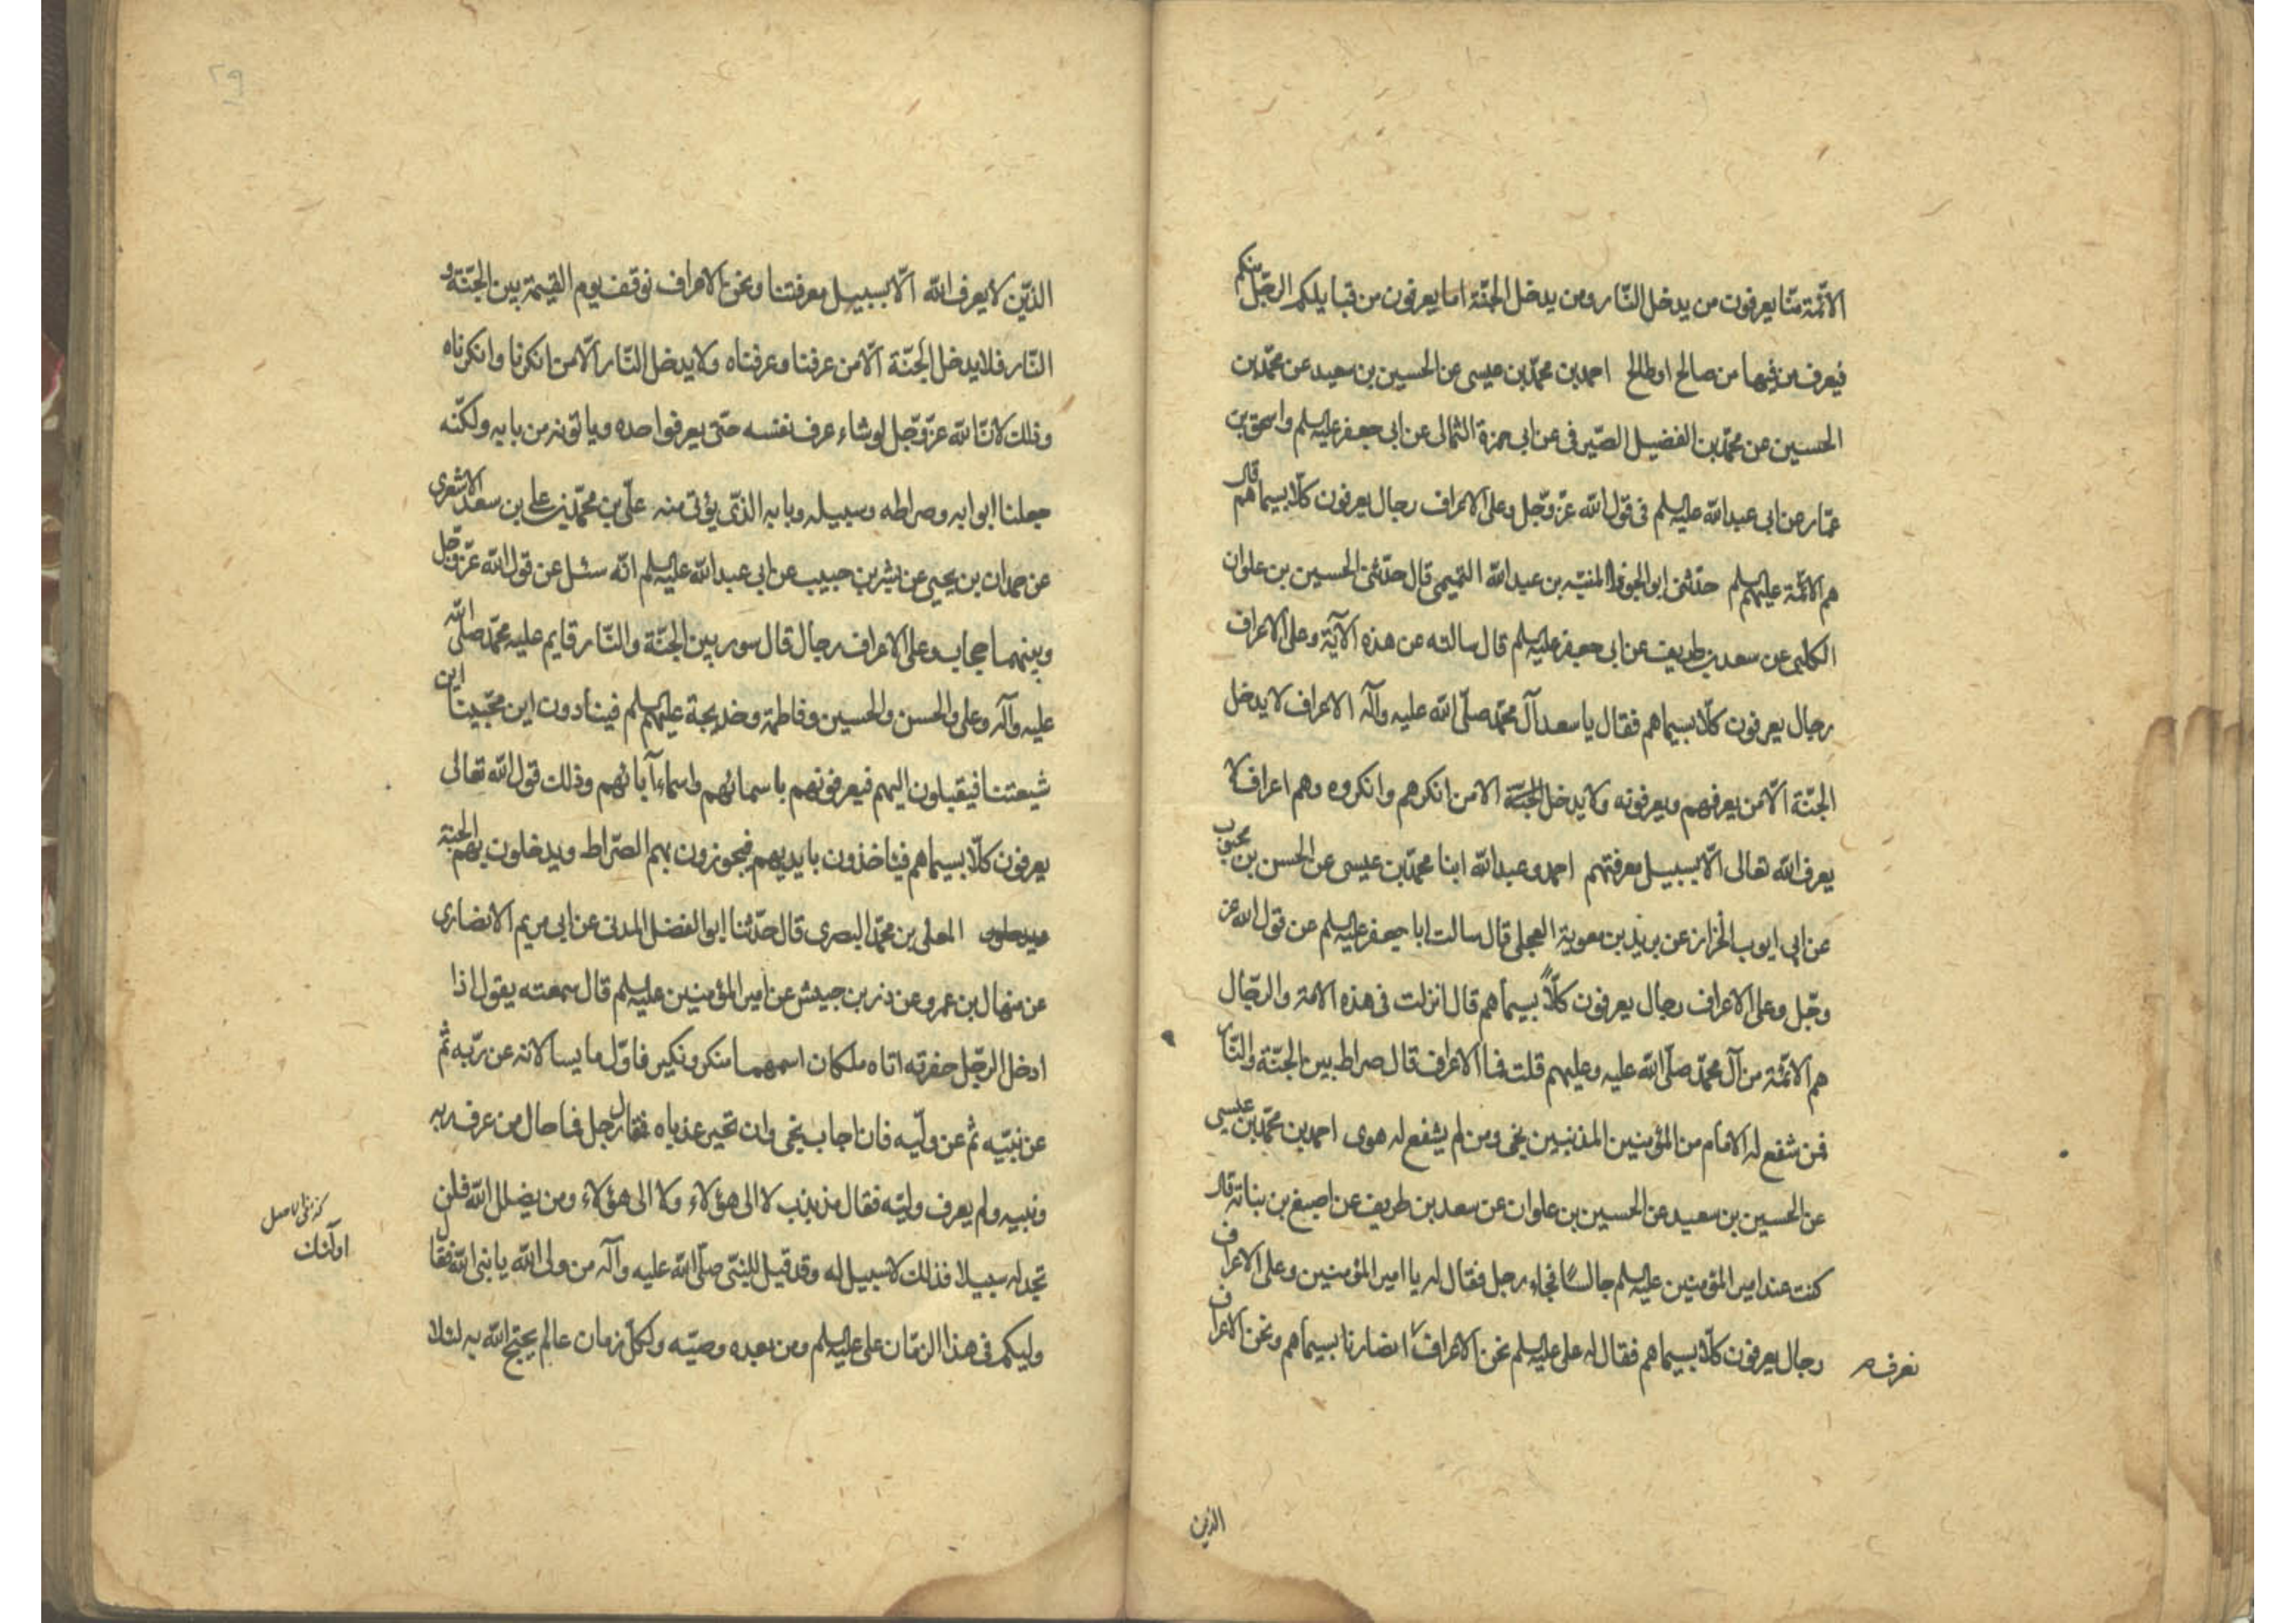 الائمّة منّا يعرفون من يدخل النّار ومن يدخل الجنّة اما يعرفون من قبايلكم الرجل منكم
فيعرف من فيها من صالح او طالح احمد بن محمّد بن عيسى عن الحسين بن سعيد عن محمّد بن
الحسين عن محمّد بن الفضيل الصّيرفى عن ابى حمزة الثمالى عن ابى جعفر عليه السلم واسحق بن
عمّار عن ابى عبد الله عليه السلم فى قول الله عزّ وجّل وعلى الاعراف رجال يعرفون كلّا بسيماهم قال
هم الائمّة عليهم السلم حدّثنى ابو الجوزا المنبّه بن عبد الله التميمى قال حدّثنى الحسين بن علوان
الكلبى عن سعد بن طريف عن ابى جعفر عليه السلم قال سالته عن هذه الآية وعلى الاعراف
رجال يعرفون كلّا بسيماهم فقال يا سعد آل محمّد صلّى الله عليه وآله الاعراف لا يدخل
الجنّة الّا من يعرفهم ويعرفونه ولا يدخل الجنّة الا من انكرهم وانكروه وهم اعراف لا
يعرف الله تعالى الّا بسبيل معرفتهم احمد وعبد الله ابنا محمّد بن عيسى عن الحسن بن محبوب
عن ابى ايوب الخزاز عن بريد بن معوية العجلى قال سالت ابا جعفر عليه السلم عن قول الله عز
وجّل وعلى الاعراف رجال يعرفون كلّاً بسيماهم قال انزلت فى هذه الامة والرّجال
هم الائمّة من آل محمّد صلّى الله عليه وعليهم قلت فما الاعراف قال صراط بين الجنّة والنّار
فمن شفع له الامام من المؤمنين المذنبين نجى ومن لم يشفع له هوى احمد بن محمّد بن عيسى
عن الحسين بن سعيد عن الحسين بن علوان عن سعد بن طريف عن اصبغ بن نباتة قال
كنت عند امير المؤمنين عليه السلم جالسًا فجاء رجل فقال له يا امير المؤمنين وعلى الاعراف
رجال يعرفون كلّا بسيماهم فقال له على عليه السلم نحن الاعراف انصارنا بسيماهم ونحن الاعراف
نعرف
الذين
٢٩
الذّين لا يعرف الله الّا بسبيل معرفتنا ونحن الاعراف نوقف يوم القيمة بين الجنّة و
النّار فلا يدخل الجنّة الّا من عرفنا وعرفناه ولا يدخل النّار الّا من انكرنا وانكرناه
وذلك لانّ الله عزّ وجّل لو شاء عرف نفسه حتّى يعرفوا حده وياتونه من بابه ولكنّه
جعلنا ابوابه وصراطه وسبيله وبابه الذّى يؤتى منه علّى بن محمّد بن على بن سعد الاشعرى
عن حمدان بن يحيى عن بشر بن حبيب عن ابى عبد الله عليه السلم انّه سئل عن قول الله عزّ وجّل
وبينهما حجاب وعلى الاعراف رجال قال سور بين الجنّة والنّار قايم عليه محمّد صلّى الله
عليه وآله وعلى والحسن والحسين وفاطمة وخديجة عليهم السلم فينادون اين محبّينا اين
شيعتنا فيقبلون اليهم فيعرفونهم باسمائهم واسماء آبائهم وذلك قول الله تعالى
يعرفون كلّا بسيماهم فياخذون بايديهم فيجوزون بهم الصّراط ويدخلون بهم الجنّة
المعلى بن محمّد البصرى قال حدّثنا ابو الفضل المدنى عن ابى مريم الانصارى
عن منهال بن عمرو عن رزين جيش عن امير المؤمنين عليه السلم قال سمعته يقول اذا
ادخل الرجّل حفرته اتاه ملكان اسمهما منكر ونكير فاوّل ما يسالانه عن ربّه ثم
عن نبيّه ثم عن وليّه فان اجاب نجى وان تحير عذباه فقال رجل فما حال من عرف ربه
ونبيه ولم يعرف وليّه فقال مذبذب لا الى هؤلاء ولا الى هؤلاء ومن يضلل الله فلن
تجد له سبيلا فذلك لا سبيل له وقد قيل للنبّى صلّى الله عليه وآله من ولى الله يا نبى الله فقال
وليكم فى هذا الزمّان على عليه السلم ومن بعده وصيّه ولكل زمان عالم يحتج الله به لئلا